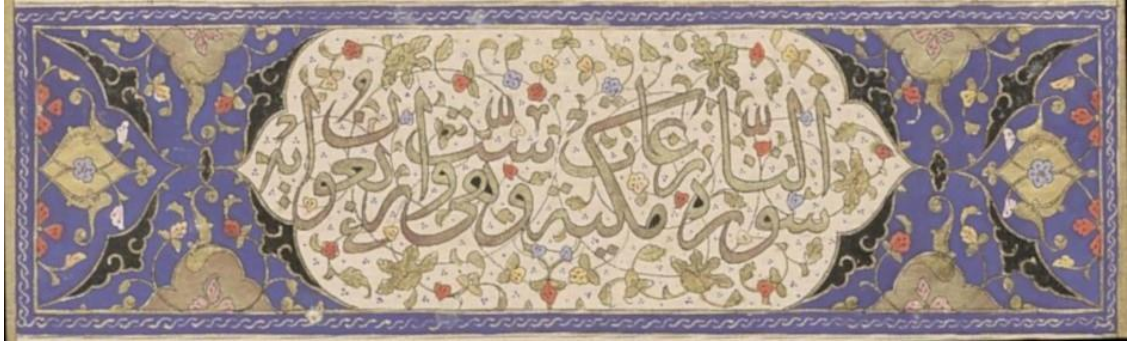 سورة النازعات مكية وهي ست واربعون اية